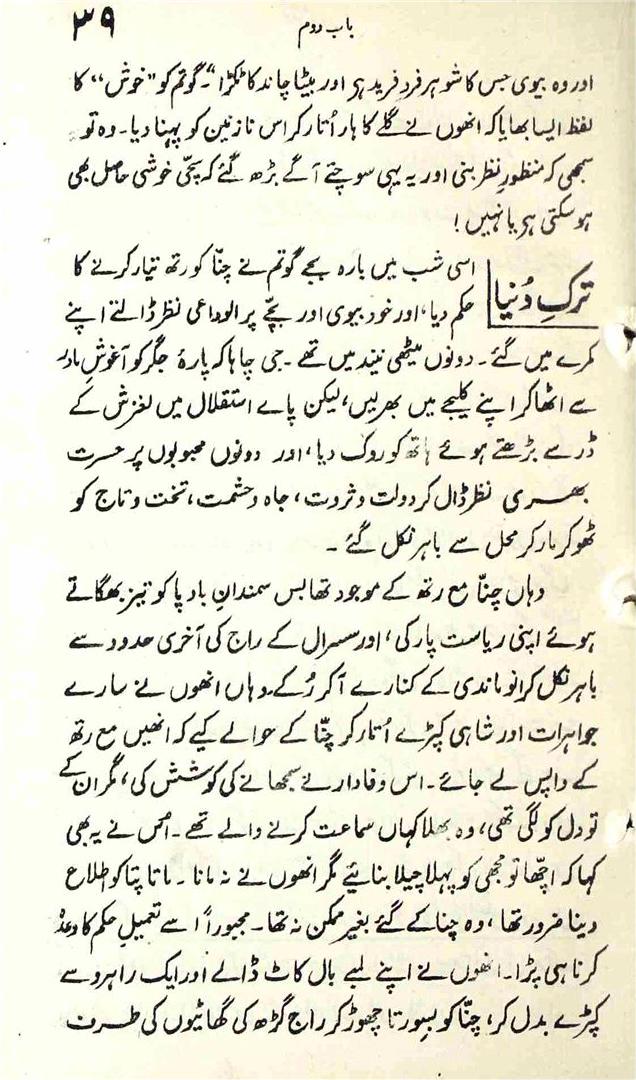 باب دوم
۳۹
اور وہ بیوی جس کا شوہر فردِ فرید ہو اور بیٹا چاند کا ٹکڑا"۔ گوتم کو "خوش" کا
لفظ ایسا بھایا کہ انھوں نے گلے کا ہار اُتار کر اس نازنین کو پہنا دیا۔ وہ تو
سمجھی کہ منظورِ نظر بنی اور یہ یہی سوچتے آگے بڑھ گئے کہ سچّی خوشی حاصل بھی
ہو سکتی ہی یا نہیں!
ترکِ دُنیا
اسی شب میں بارہ بجے گوتم نے چنّا کو رتھ تیار کرنے کا
حکم دیا، اور خود بیوی اور بچّے پر الوداعی نظر ڈالنے اپنے
کمرے میں گئے۔ دونوں میٹھی نیند میں تھے۔ جی چاہا کہ پارۂ جگر کو آغوشِ مادر
سے اٹھا کر اپنے کلیجے میں بھرلیں، لیکن پاے استقلال میں لغزش کے
ڈر سے بڑھتے ہوئے ہاتھ کو روک دیا، اور دونوں محبوبوں پر حسرت
بھری نظر ڈال کر دولت و ثروت، جاہ و حشمت، تخت و تاج کو
ٹھوکر مار کر محل سے باہر نکل گئے۔
وہاں چنّا مع رتھ کے موجود تھا بس سمندانِ بادپا کو تیز بھگاتے
ہوئے اپنی ریاست پار کی، اور سسرال کے راج کی آخری حدود سے
باہر نکل کر انوما ندی کے کنارے آکر رُکے۔ وہاں انھوں نے سارے
جواہرات اور شاہی کپڑے اُتار کر چنّا کے حوالے کیے کہ انھیں مع رتھ
کے واپس لے جائے۔ اس وفادار نے سمجھانے کی کوشش کی، مگر ان کے
تو دل کو لگی تھی، وہ بھلا کہاں سماعت کرنے والے تھے۔ اُس نے یہ بھی
کہا کہ اچّھا تو مجھی کو پہلا چیلا بنائیے مگر انھوں نے نہ مانا۔ ماتا پتا کو اطلاع
دینا ضرور تھا، وہ چنا کے گئے بغیر ممکن نہ تھا۔ مجبوراً اسے تعمیلِ حکم کا وعدہ
کرنا ہی پڑا۔ انھوں نے اپنے لمبے بال کاٹ ڈالے اور ایک راہرو سے
کپڑے بدل کر، چنّا کو بسورتا چھوڑ کر راج گڑھ کی گھاٹیوں کی طرف